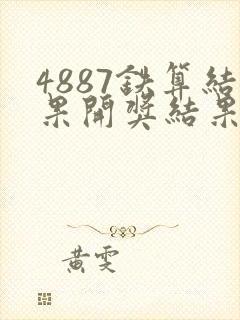 4887鉄算結
果開奬結果
黃雯